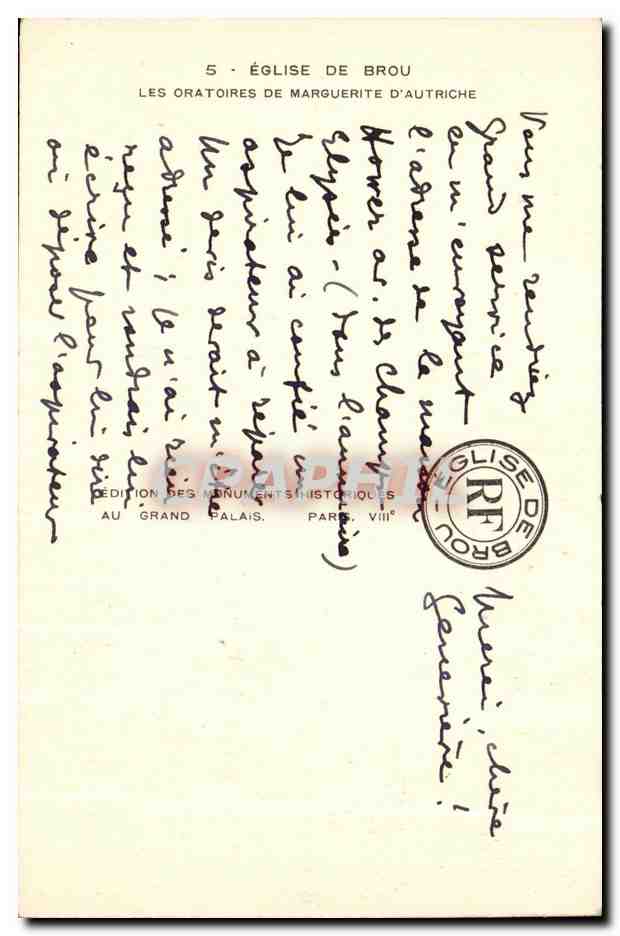 5 - ÉGLISE DE BROU
LES ORATOIRES DE MARGUERITE D'AUTRICHE
Vous me rendriez
grand service
en m'envoyant
l'adresse de la maison
Hower av. des Champs-
Elysées - (dans l'annuaire)
Je lui ai confié un
aspirateur à réparer
Un devis devait m'être
adressé ; je n'ai rien
reçu et voudrais lui
écrire pour lui dire
où déposer l'aspirateur
Merci, chère
Geneviève !
ÉDITION DES MONUMENTS HISTORIQUES
AU GRAND PALAIS. PARIS. VIIIe
ÉGLISE DE BROU
RF